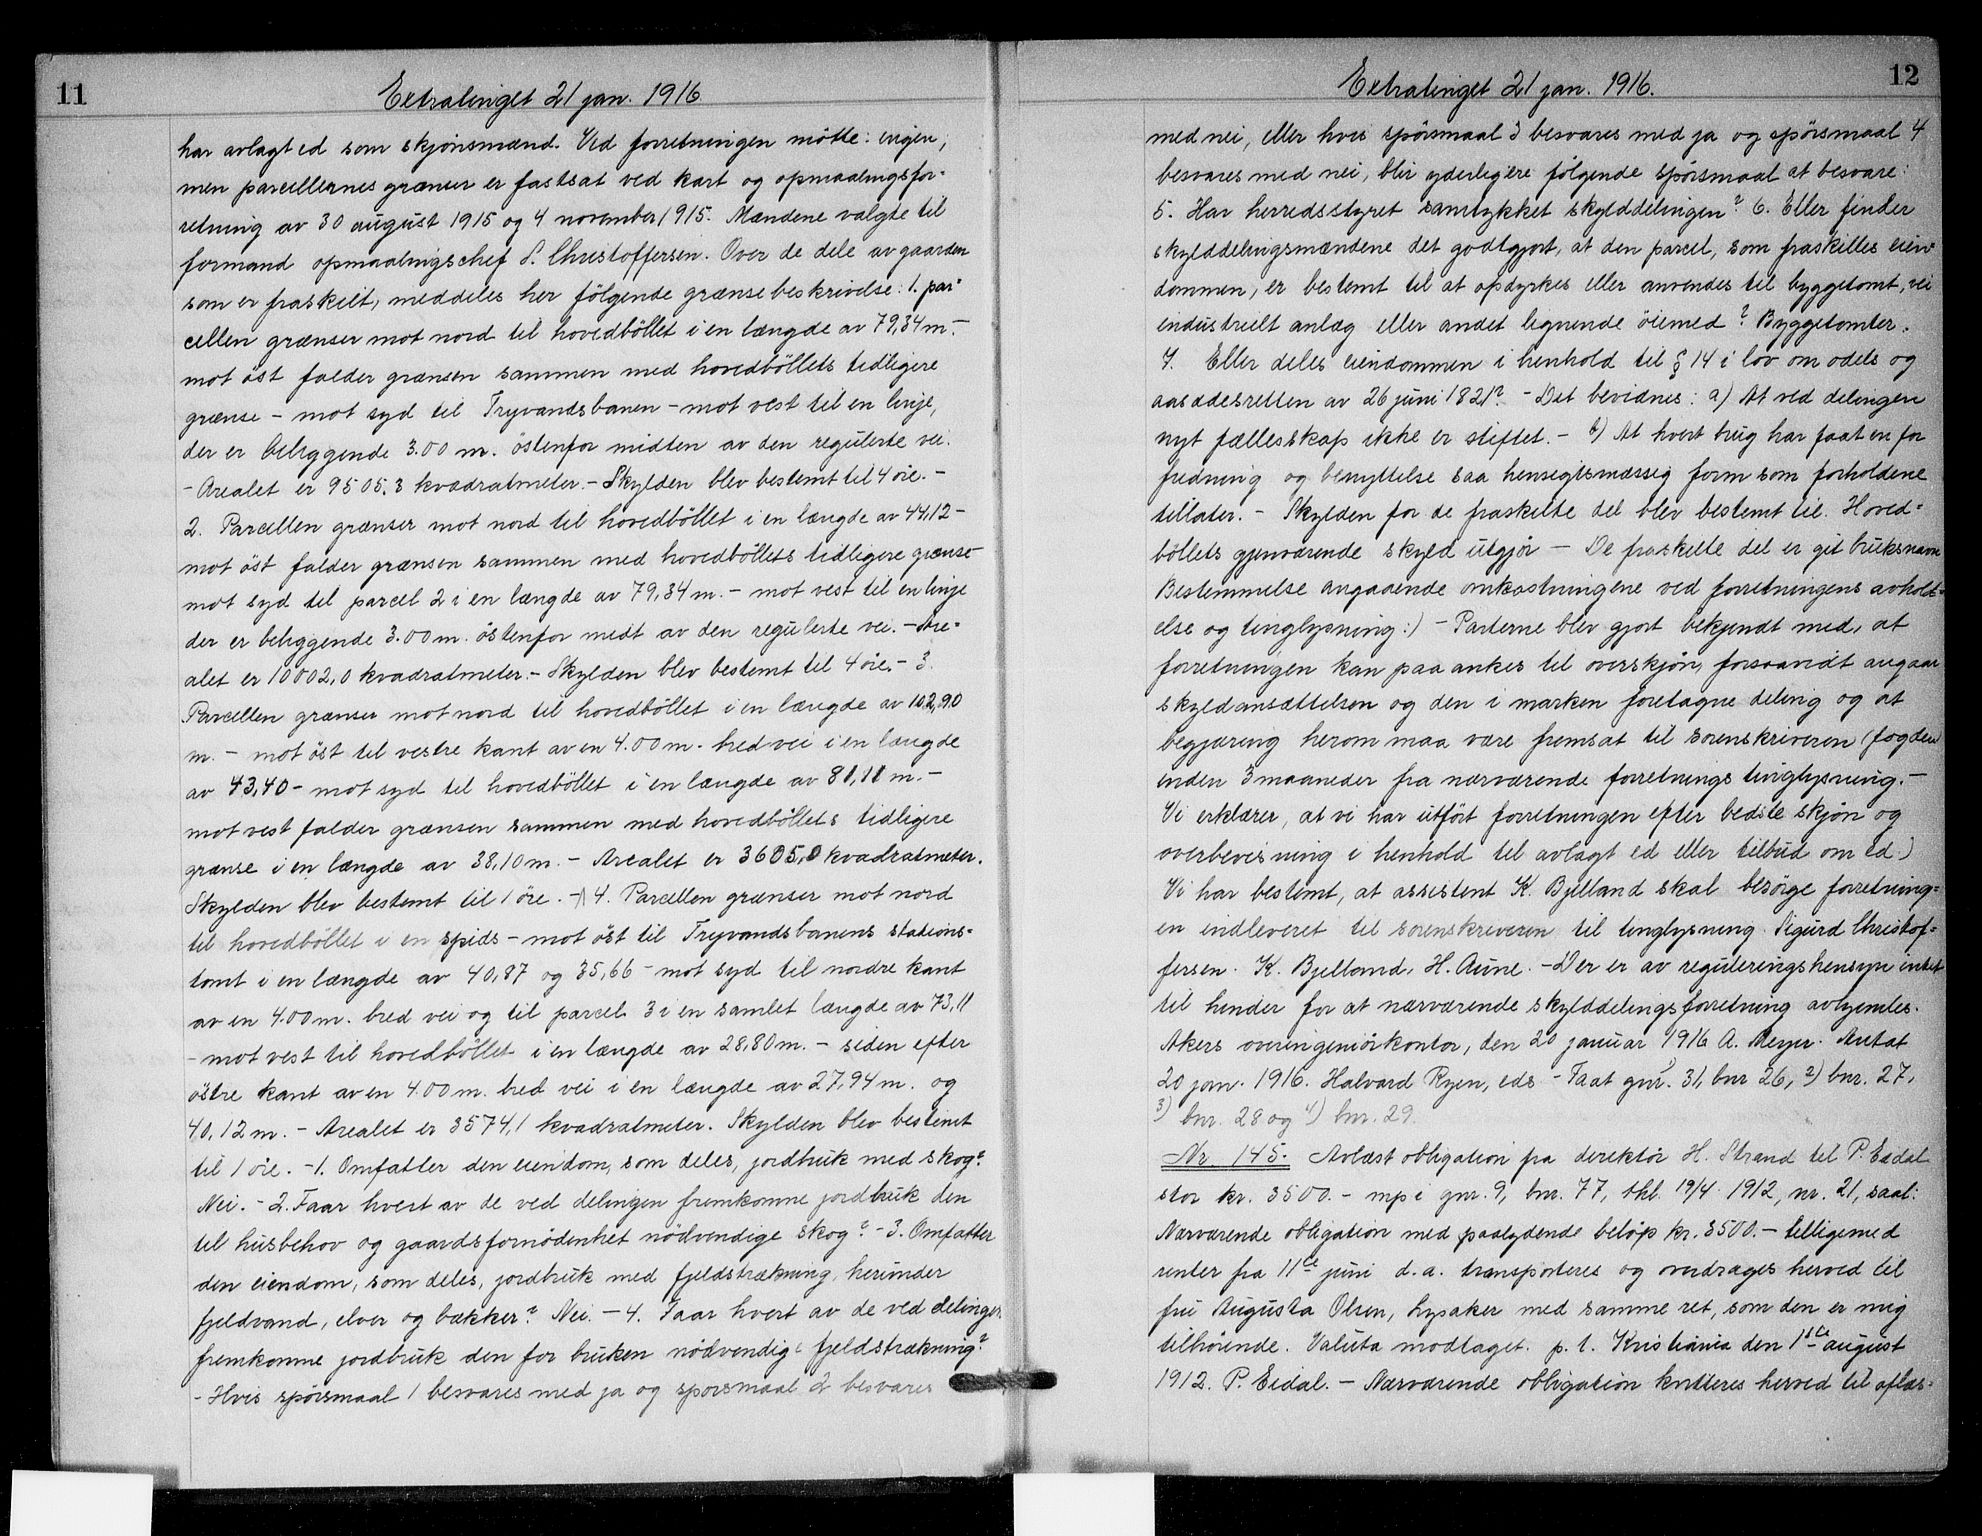 11
Extratinget 21 jan. 1916
har avlagt ed som skjønsmænd. Ved forretningen mötte: ingen,
men parcellernes grænser er fastsat ved kart og opmaalingsfor-
retning av 30 august 1915 og 4 november 1915. Mændene valgte til
formand opmaalingschef S. Christoffersen. Over de dele av gaarden
som er fraskilt, meddeles her følgende grænsebeskrivelse: 1. par-
cellen grænser mot nord til hovedböllet i en længde av 79,34 m. -
mot öst falder grænsen sammen med hovedböllets tidligere
grænse - mot syd til Tryvandsbanen - mot vest til en linje,
der er beliggende 3.00 m. östenfor midten av den regulerte vei.
- Arealet er 9505,3 kvadratmeter. - Skylden blev bestemt til 4 öre. -
2. Parcellen grænser mot nord til hovedböllet i en længde av 44,12 -
mot öst falder grænsen sammen med hovedböllets tidligere grænse -
mot syd til parcel 2 i en længde av 79,34 m. - mot vest til en linje
der er beliggende 3.00 m. östenfor midt av den regulerte vei. - Are-
alet er 10002,0 kvadratmeter. - Skylden blev bestemt til 4 öre. - 3.
Parcellen grænser mot nord til hovedböllet i en længde av 102,90
m. - mot öst til vestre kant av en 4.00 m. bred vei i en længde
av 43,40 - mot syd til hovedböllet i en længde av 81,11 m. -
mot vest falder grænsen sammen med hovedböllets tidligere
grænse i en længde av 38,10 m. - Arealet er 3605,0 kvadratmeter.
Skylden blev bestemt til 1 öre. - 4. Parcellen grænser mot nord
til hovedböllet i en spids - mot öst til Tryvandsbanens stations-
tomt i en længde av 40,87 og 35,66 - mot syd til nordre kant
av en 4.00 m. bred vei og til parcel 3 i en samlet længde av 73,11
- mot vest til hovedböllet i en længde av 28,80 m. - siden efter
östre kant av en 4.00 m. bred vei i en længde av 27,94 m. og
40,12 m. - Arealet er 3574,1 kvadratmeter. Skylden blev bestemt
til 1 öre. - 1. Omfatter den eiendom, som deles, jordbruk med skog?
Nei. - 2. Faar hvert av de ved delingen fremkomne jordbruk den
til husbehov og gaardsfornödenhet nödvendige skog? - 3. Omfatter
den eiendom, som deles, jordbruk med fjeldstrækning, herunder
fjeldvand, elver og bækker? Nei. - 4. Faar hvert av de ved delingen
fremkomne jordbruk den for bruken nödvendige fjeldstrækning?
- Hvis spörsmaal 1 besvares med ja og spörsmaal 2 besvares
12
Extratinget 21 jan. 1916.
med nei, eller hvis spörsmaal 3 besvares med ja og spörsmaal 4
besvares med nei, blir yderligere følgende spörsmaal at besvare:
5. Har herredsstyret samtykket skylddelingen? 6. Eller finder
skylddelingsmændene det godtgjort, at den parcel, som fraskilles eien-
dommen, er bestemt til at opdyrkes eller anvendes til byggetomt, vei
industrielt anlæg eller andet lignende öiemed? Byggetomter.
7. Eller deles eiendommen i henhold til § 14 i lov om odels og
aasædesretten av 26 juni 1821? - Det bevidnes: a) At ved delingen
nyt fællesskap ikke er stiftet. - b) At hvert brug har faat en for
fredning og benyttelse saa hensigtsmæssig form som forholdene
tillater. - Skylden for de fraskilte del blev bestemt til. Hoved-
böllets gjenværende skyld utgjør - De fraskilte del er git bruksnavn
Bestemmelse angaaende omkostningene ved forretningens avhold-
else og tinglysning:) - Parterne blev gjort bekjendt med, at
forretningen kan paaankes til overskjøn, forsaavidt angaar
skyldansættelsen og den i marken foretagne deling og at
begjæring herom maa være fremsat til sorenskriveren (fogden)
inden 3 maaneder fra nærværende forretnings tinglysning. -
Vi erklærer, at vi har utført forretningen efter bedste skjøn og
overbevisning i henhold til avlagt ed eller tilbud om ed.)
Vi har bestemt, at assistent K. Bjelland skal besörge forretning-
en indleveret til sorenskriveren til tinglysning. Sigurd Christof-
fersen. K. Bjelland. H. Aune. - Der er av reguleringshensyn intet
til hinder for at nærværende skylddelingsforretning avhjemles.
Akers overingeniörkontor, den 20 januar 1916 A. Meyer. Antat
20 jan. 1916. Halvard Ryen, eds - Faat gnr. 31, 1) bnr 26, 2) bnr. 27,
3) bnr. 28 og 4) bnr. 29.
Nr. 145. Avlæst obligation fra direktör H. Strand til P. Eidal
stor kr. 3500. - m p i gnr. 9, bnr. 77, thl. 19/4 1912, nr. 21, saal:
Nærværende obligation med paalydende beløp kr. 3500. - tilligemed
renter fra 11te juni d.a. transporteres og overdrages herved til
fru Augusta Olsen, Lysaker med samme ret, som den er mig
tilhörende. Valuta modtaget. p. t. Kristiania den 1ste august
1912. P. Eidal. - Nærværende obligation kvitteres herved til aflæs-